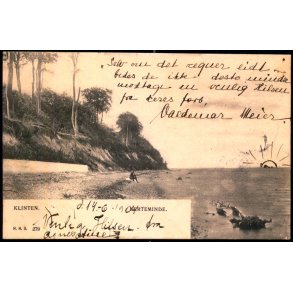 "Selv om det regner lidt
bedes de ikke desto mindre
modtage en venlig Hilsen
fra deres forb.
Valdemar Meier
KLINTEN. KERTEMINDE.
d. 14-6-190
R. & S. 279 Venlig Hilsen fra